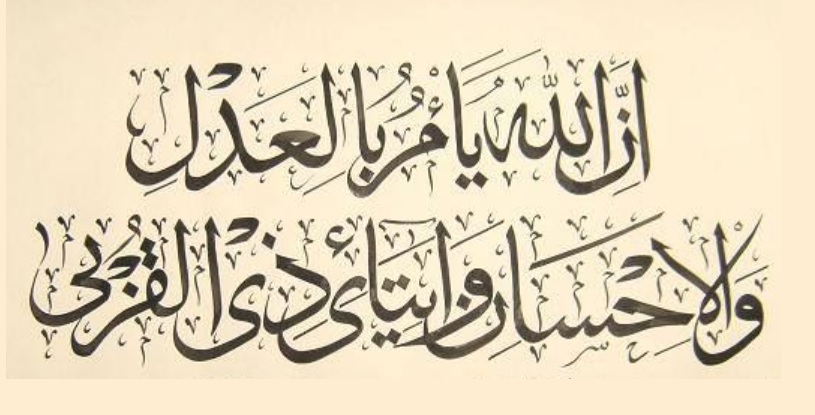 اِنَّ اللّٰهَ يَأْمُرُ بِالْعَدْلِ
وَالْاِحْسَانِ وَاِيتَائِ ذِي الْقُرْبٰى